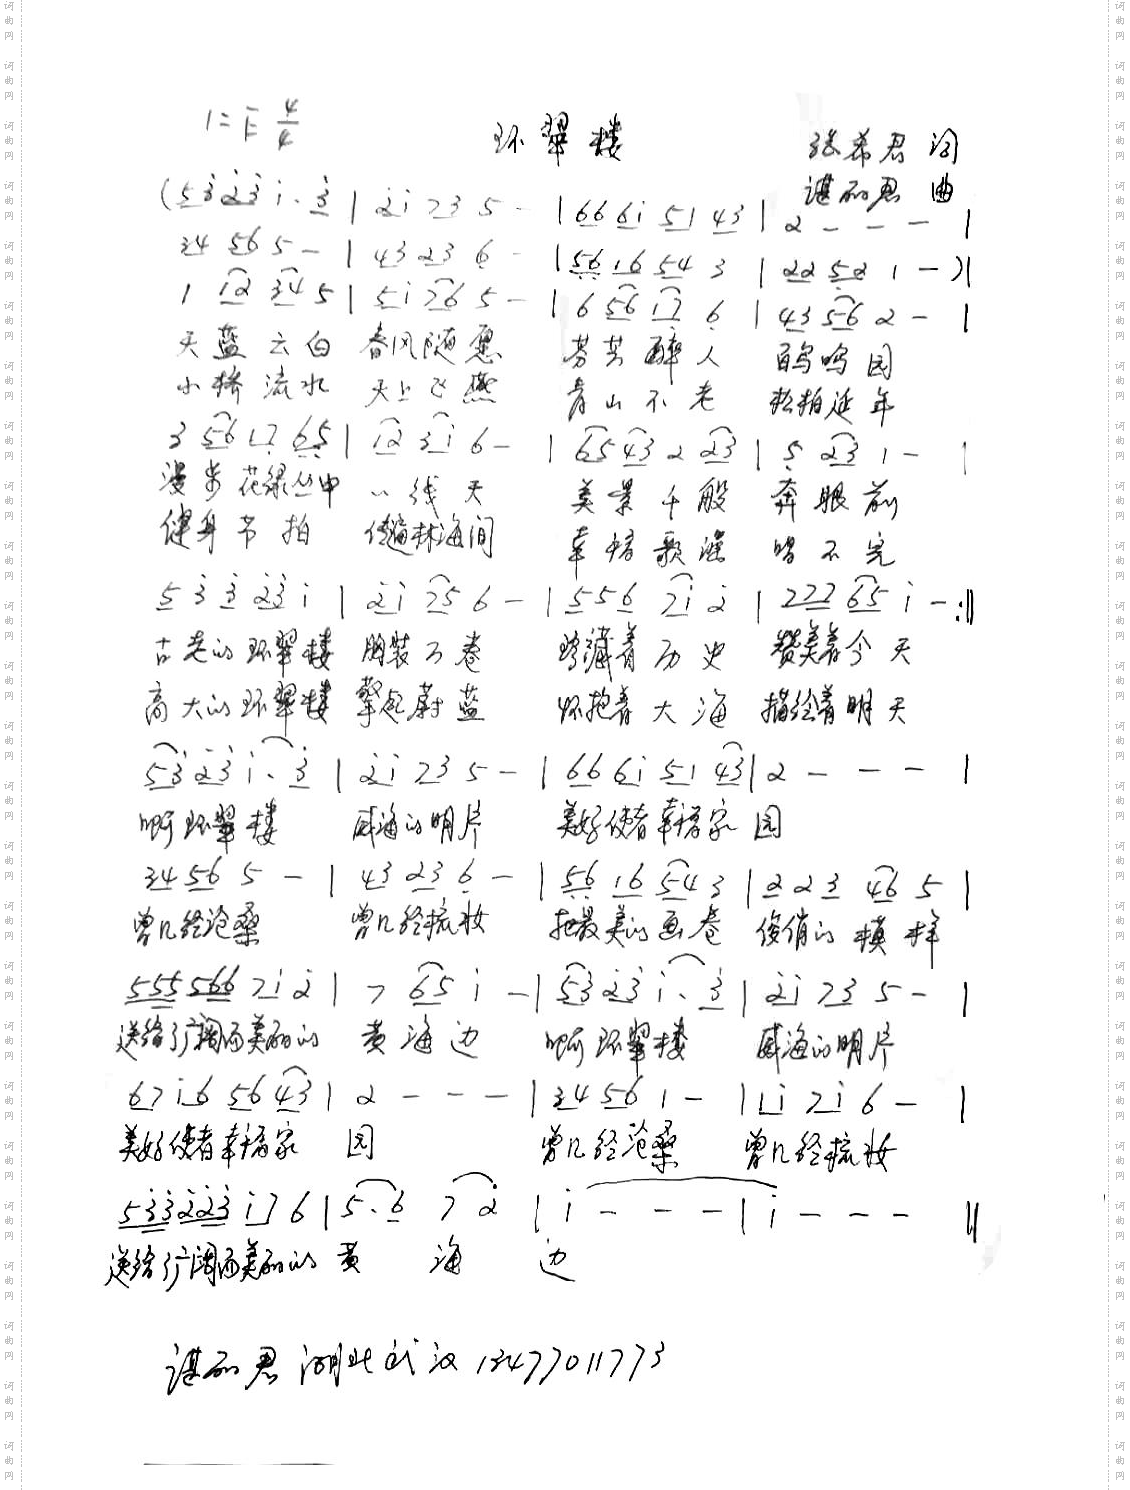 1=E 4/4
环翠楼
张希君 词
谌丽君 曲
(5323 1·3 | 2173 5 - | 6661 5143 | 2 - - - |
34 56 5 - | 43 23 6 - | 56 16 54 3 | 22 52 1 - )|
1 12 34 5 | 51 76 5 - | 6 56 17 6 | 43 56 2 - |
天蓝云白 春风随愿 芬芳醉人 百鸟鸣园
小桥流水 天上飞燕 青山不老 松柏延年
3 56 17 65 | 12 31 6 - | 65 43 2 23 | 5 23 1 - |
漫步花绿丛中 一线天 美景千般 奔眼前
健身节拍 传遍林海间 幸福歌谣 唱不完
5 3 3 23 1 | 21 75 6 - | 55 6 71 2 | 777 65 1 - :‖
古老的环翠楼 胸装万卷 珍藏着历史 赞美着今天
高大的环翠楼 擎起蔚蓝 怀抱着大海 描绘着明天
53 23 1·3 | 21 73 5 - | 66 61 51 43 | 2 - - - |
啊环翠楼 威海的明片 美好使者幸福家园
34 56 5 - | 43 23 6 - | 56 16 54 3 | 2 2 3 46 5 |
曾几经沧桑 曾几经梳妆 把最美的画卷 俊俏的模样
555 566 71 2 | 7 65 1 - | 53 23 1·3 | 21 73 5 - |
送给了广阔而美丽的 黄海边 啊环翠楼 威海的明片
67 16 56 43 | 2 - - - | 34 56 1 - | 11 71 6 - |
美好使者幸福家园 曾几经沧桑 曾几经梳妆
533 223 17 6 | 5·6 7 2 | 1 - - - | 1 - - - ‖
送给了广阔而美丽的 黄海边
谌丽君 湖北武汉 13477011773
词曲网